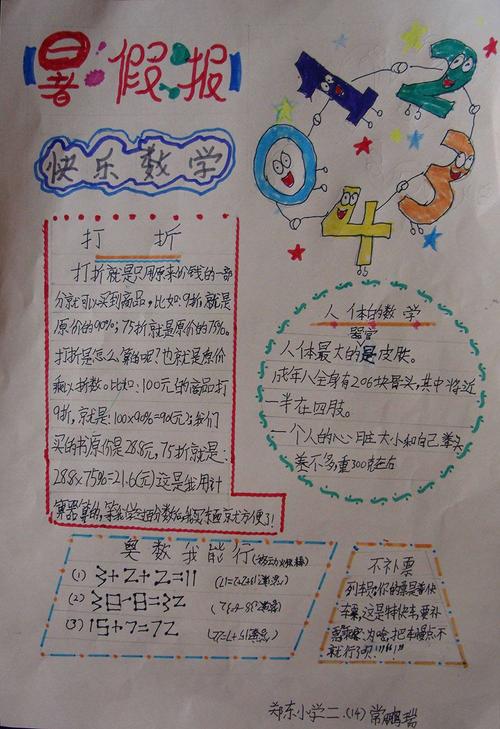 暑假报
0 1 2 3 4
快乐数学
打 折
打折就是只用原来价钱的一部
分就可以买到商品,比如:9折,就是
原价的90%;75折就是原价的75%。
打折是怎么算的呢?也就是原价
乘以折数。比如:100元的商品打
9折,就是:100×90%=90(元);我们
买的书原价是28.8元,75折就是:
28.8×75%=21.6(元)这是我用计
算器算的,等我学过百分数后
方便了!
人体的数学
人体最大的器官是皮肤。
成年人全身有206块骨头,其中将近
一半在四肢。
一个人的心脏大小和自己拳头
差不多重300克左右
奥数我能行
(1) 3+2+2=11
(2) 30-8=32
(3) 15+7=72
不补票
列车员:你的票是普快
车票,这是特快车,要补
票
就行了呗!
郑东小学二.(14) 常鹏瑞